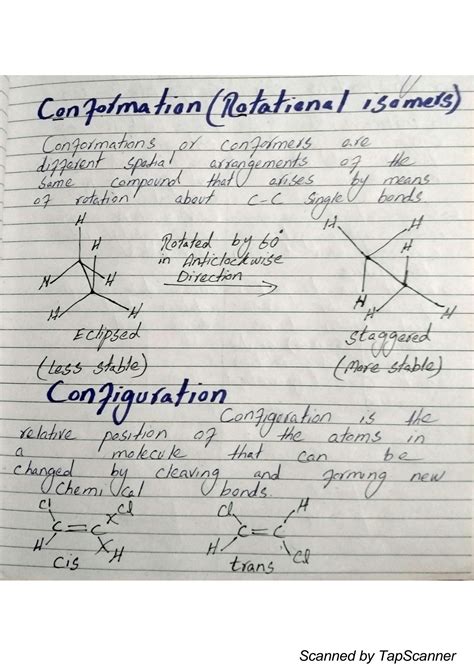 Conformation (Rotational isomers)
Conformations or conformers are
different spatial arrangements of the
same compound that arises by means
of rotation about C-C single bonds
H H H
H Rotated by 60°
in Anticlockwise
Direction
N H
H H H H H H
Eclipsed Staggered
(Less stable) (More stable)
Configuration
Configuration is the
relative position of the atoms in
a molecule that can be
changed by cleaving and forming new
chemical bonds.
Cl Cl Cl H
C=C C=C
H H H Cl
cis trans
Scanned by TapScanner